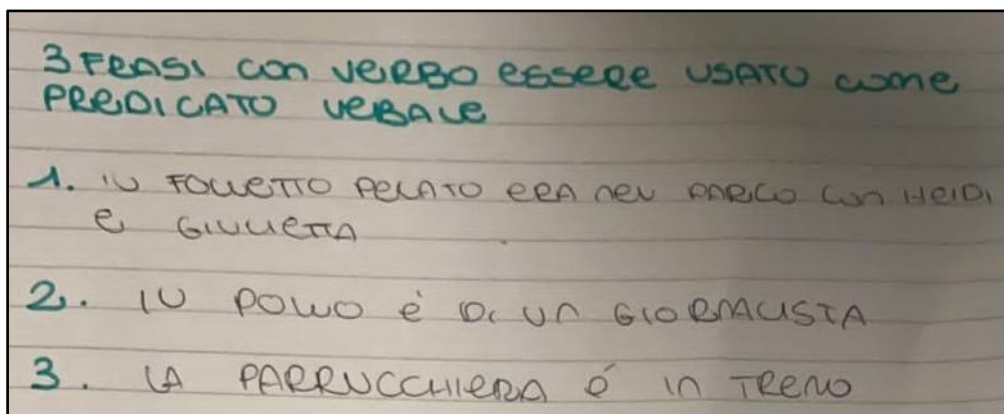 3 FRASI con VERBO essere USATO come
PREDICATO VERBALE
1. IL FOLLETTO PELATO ERA nel PARCO con HEIDI
e GIULIETTA
2. IL POLLO è DI un GIORNALISTA
3. LA PARRUCCHIERA è in TRENO